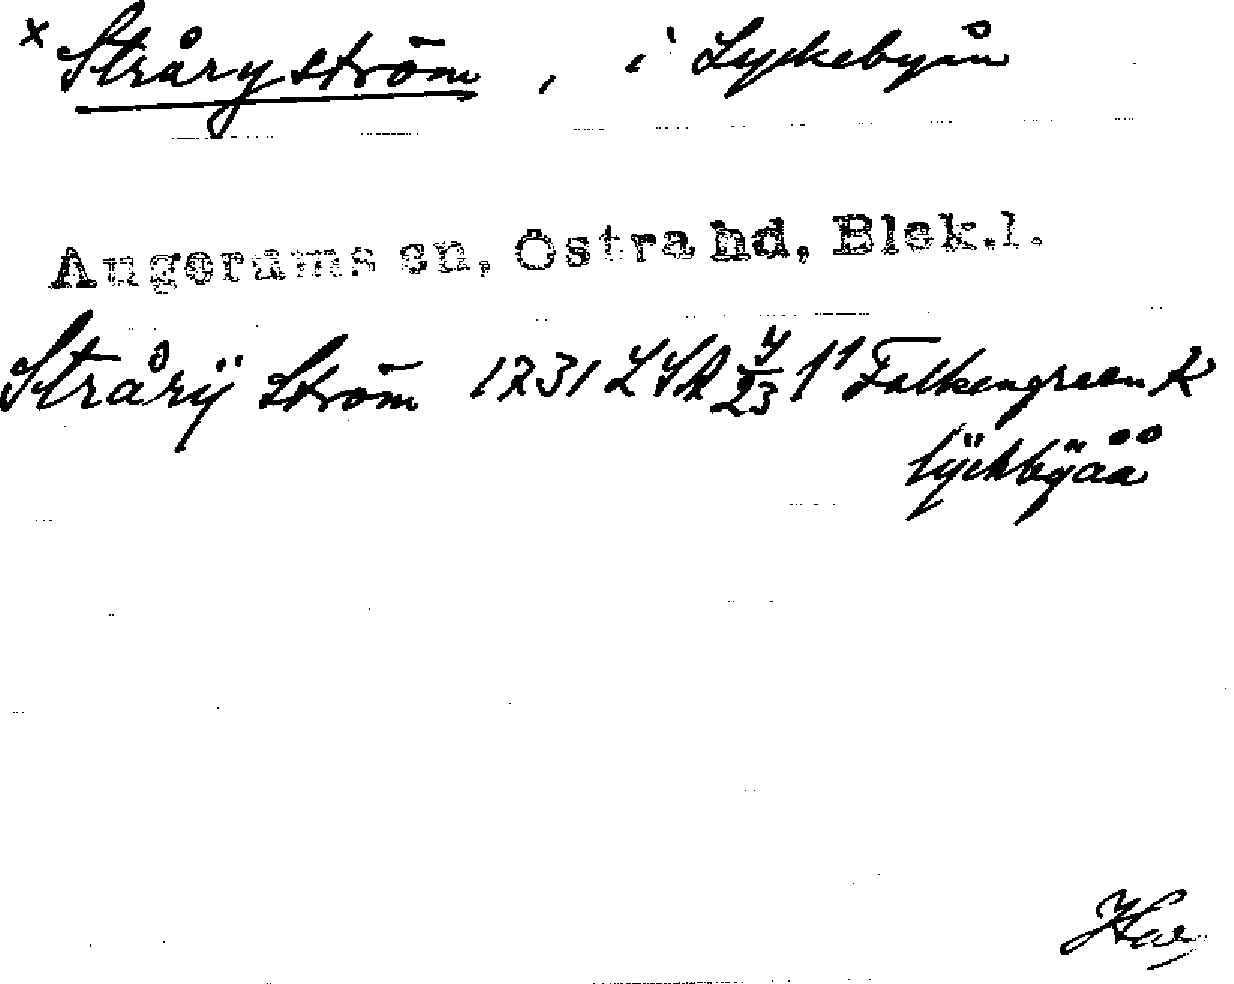 × Stråryström, i Lyckebyån
Augerums sn, Östra hd, Blek.l.
Strårÿ Ström 1731 LSA 4/23 1¹ Falkengreen K
lÿckbÿåå